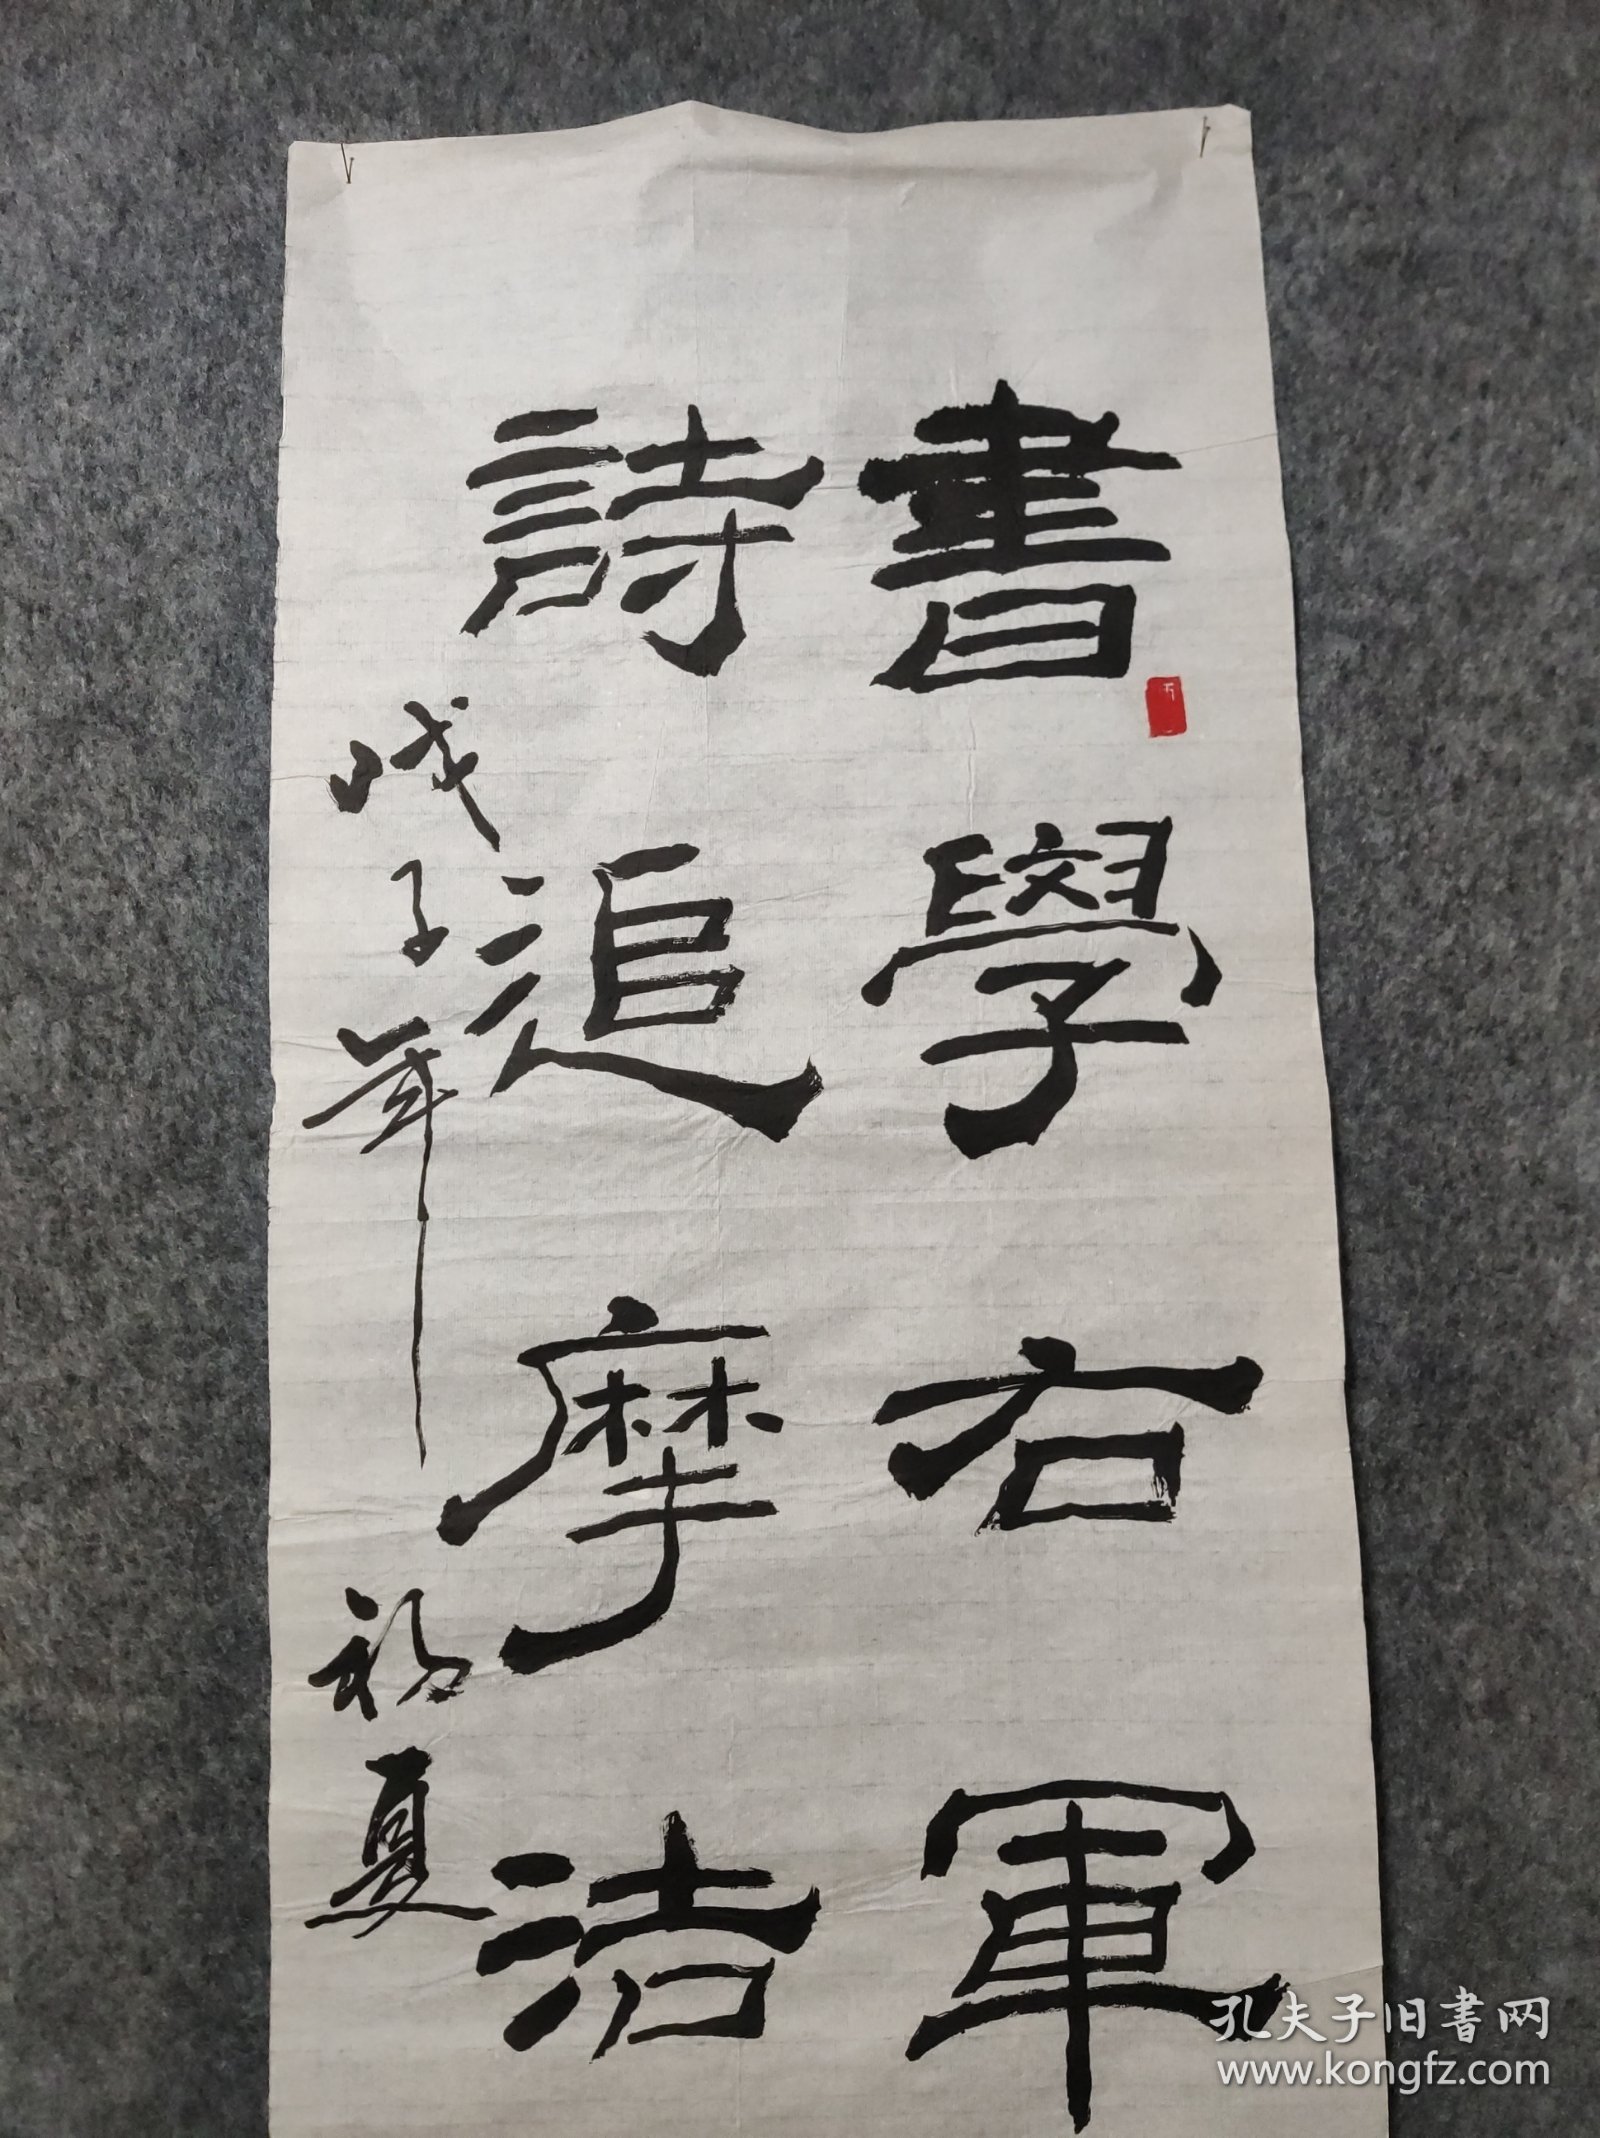 書學右軍
詩追摩詰
戊子年 初夏
孔夫子旧书网
www.kongfz.com